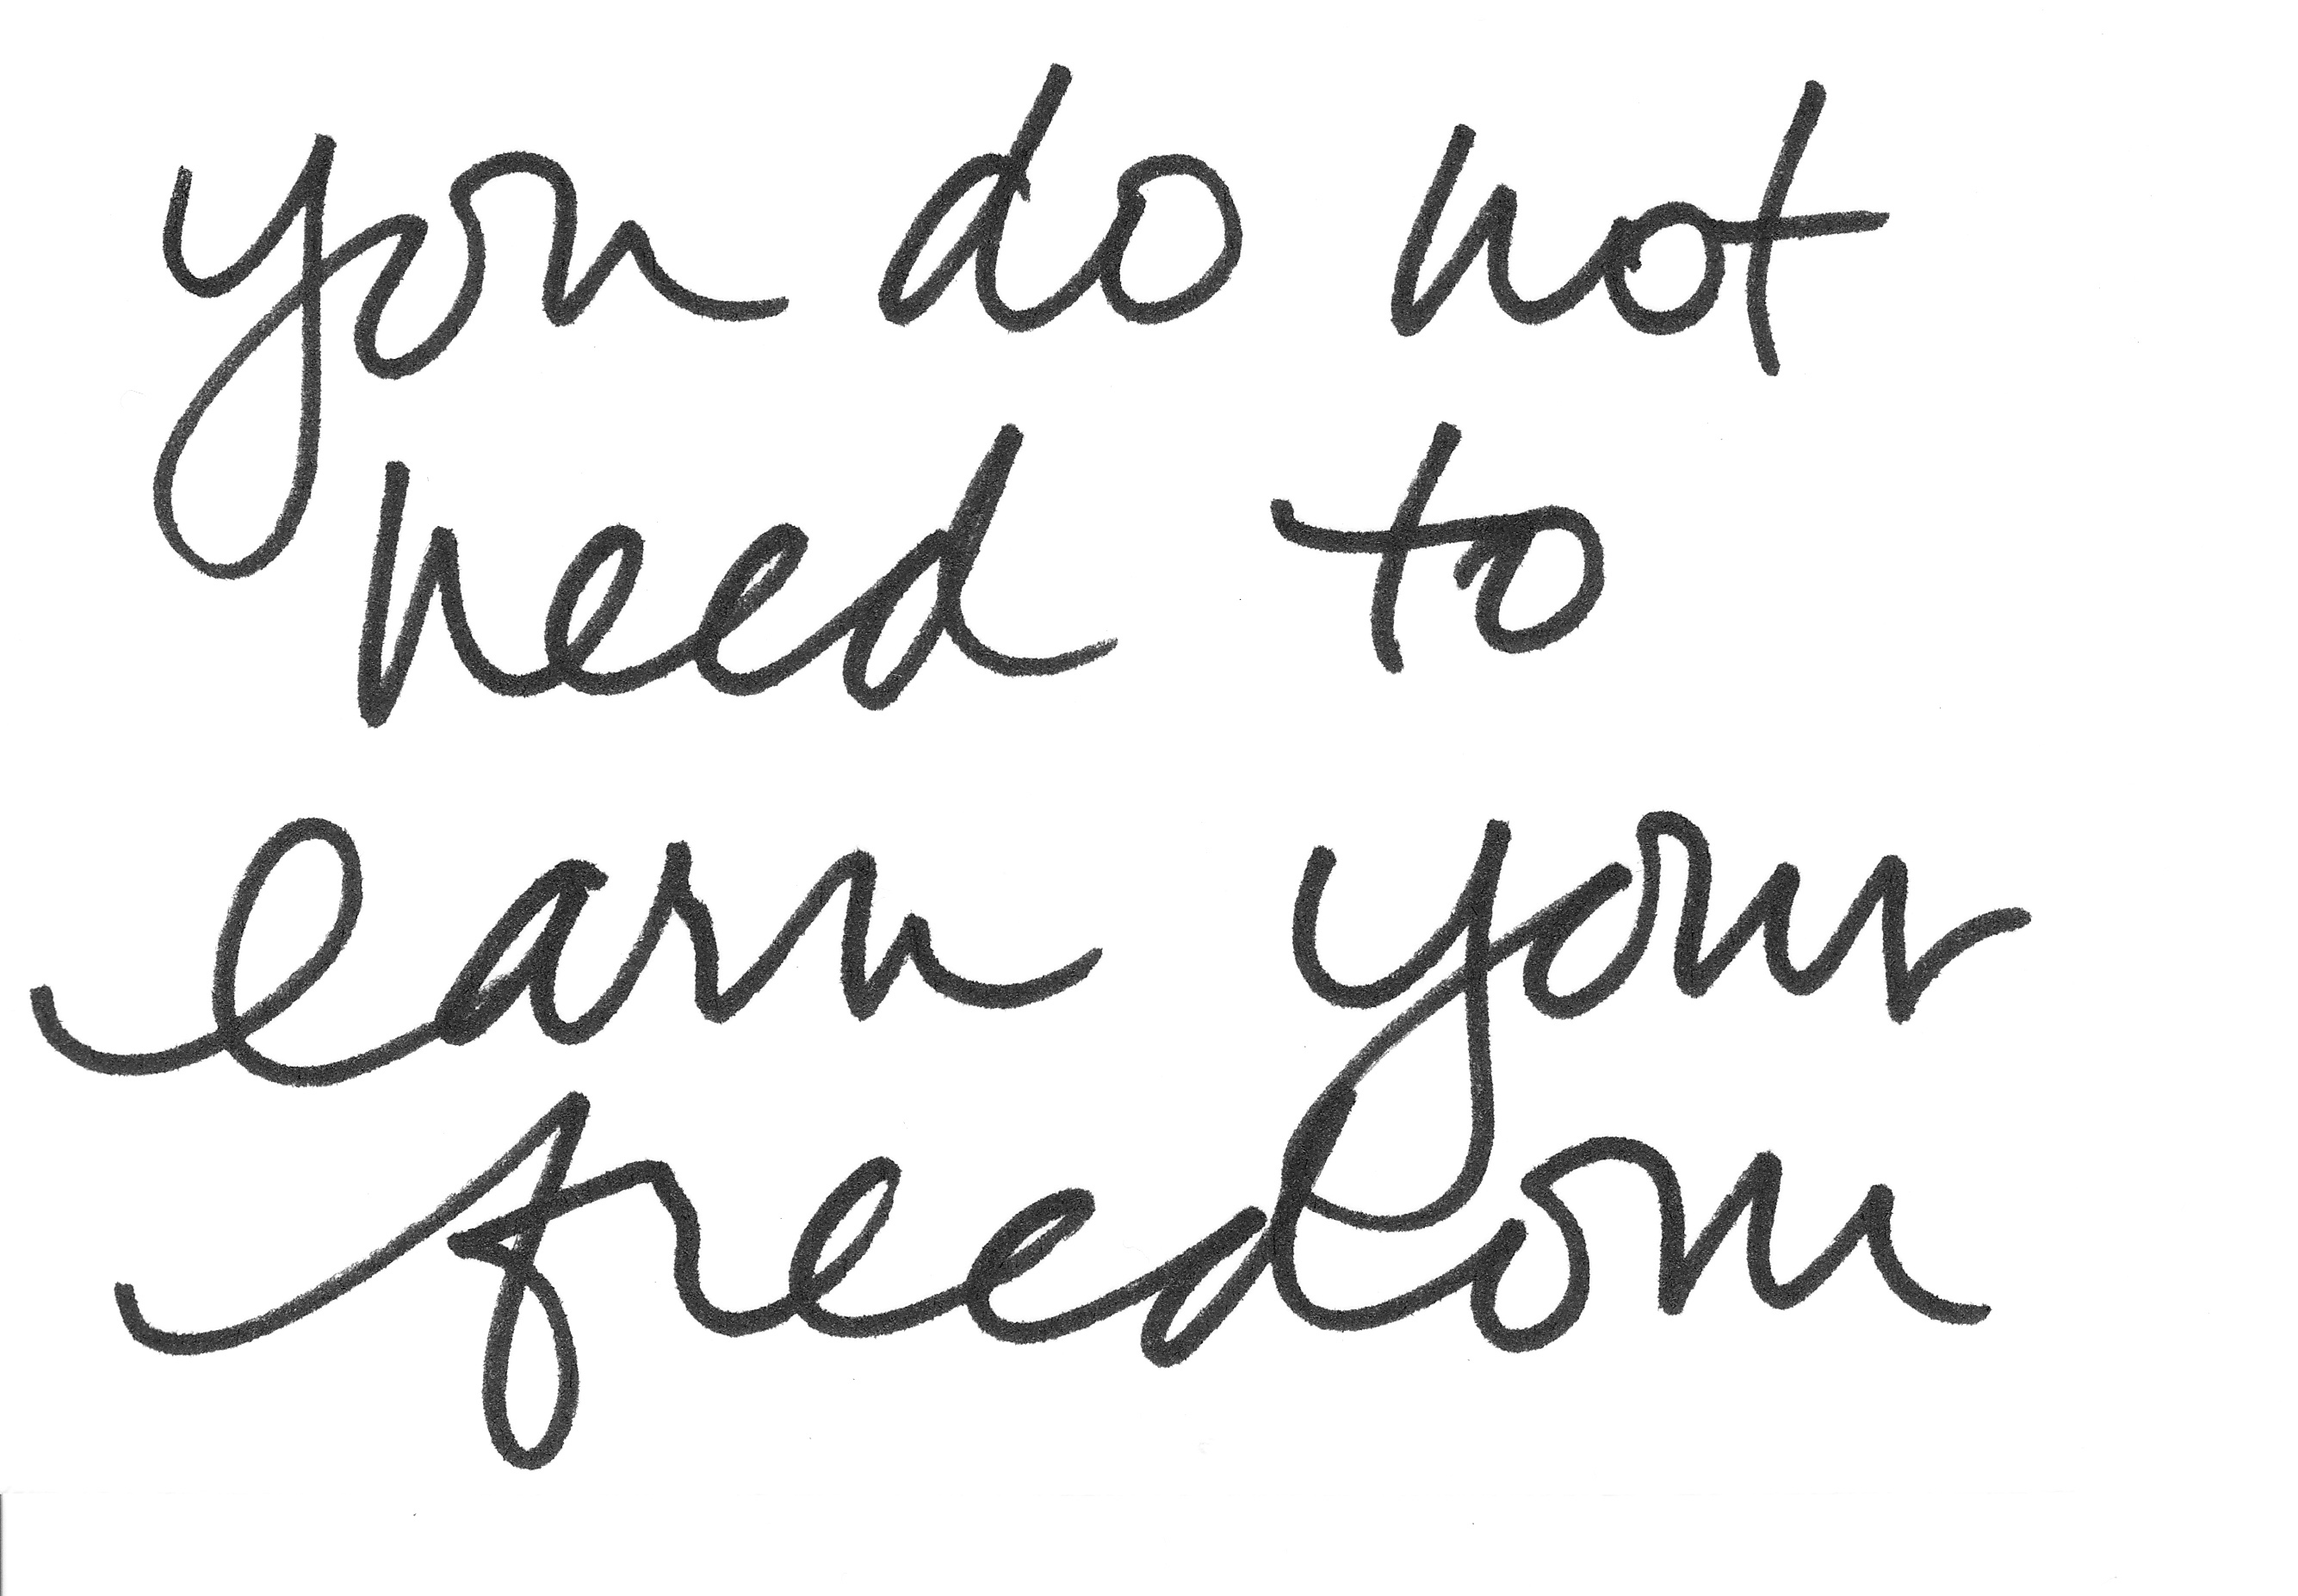 you do not
need to
earn your
freedom